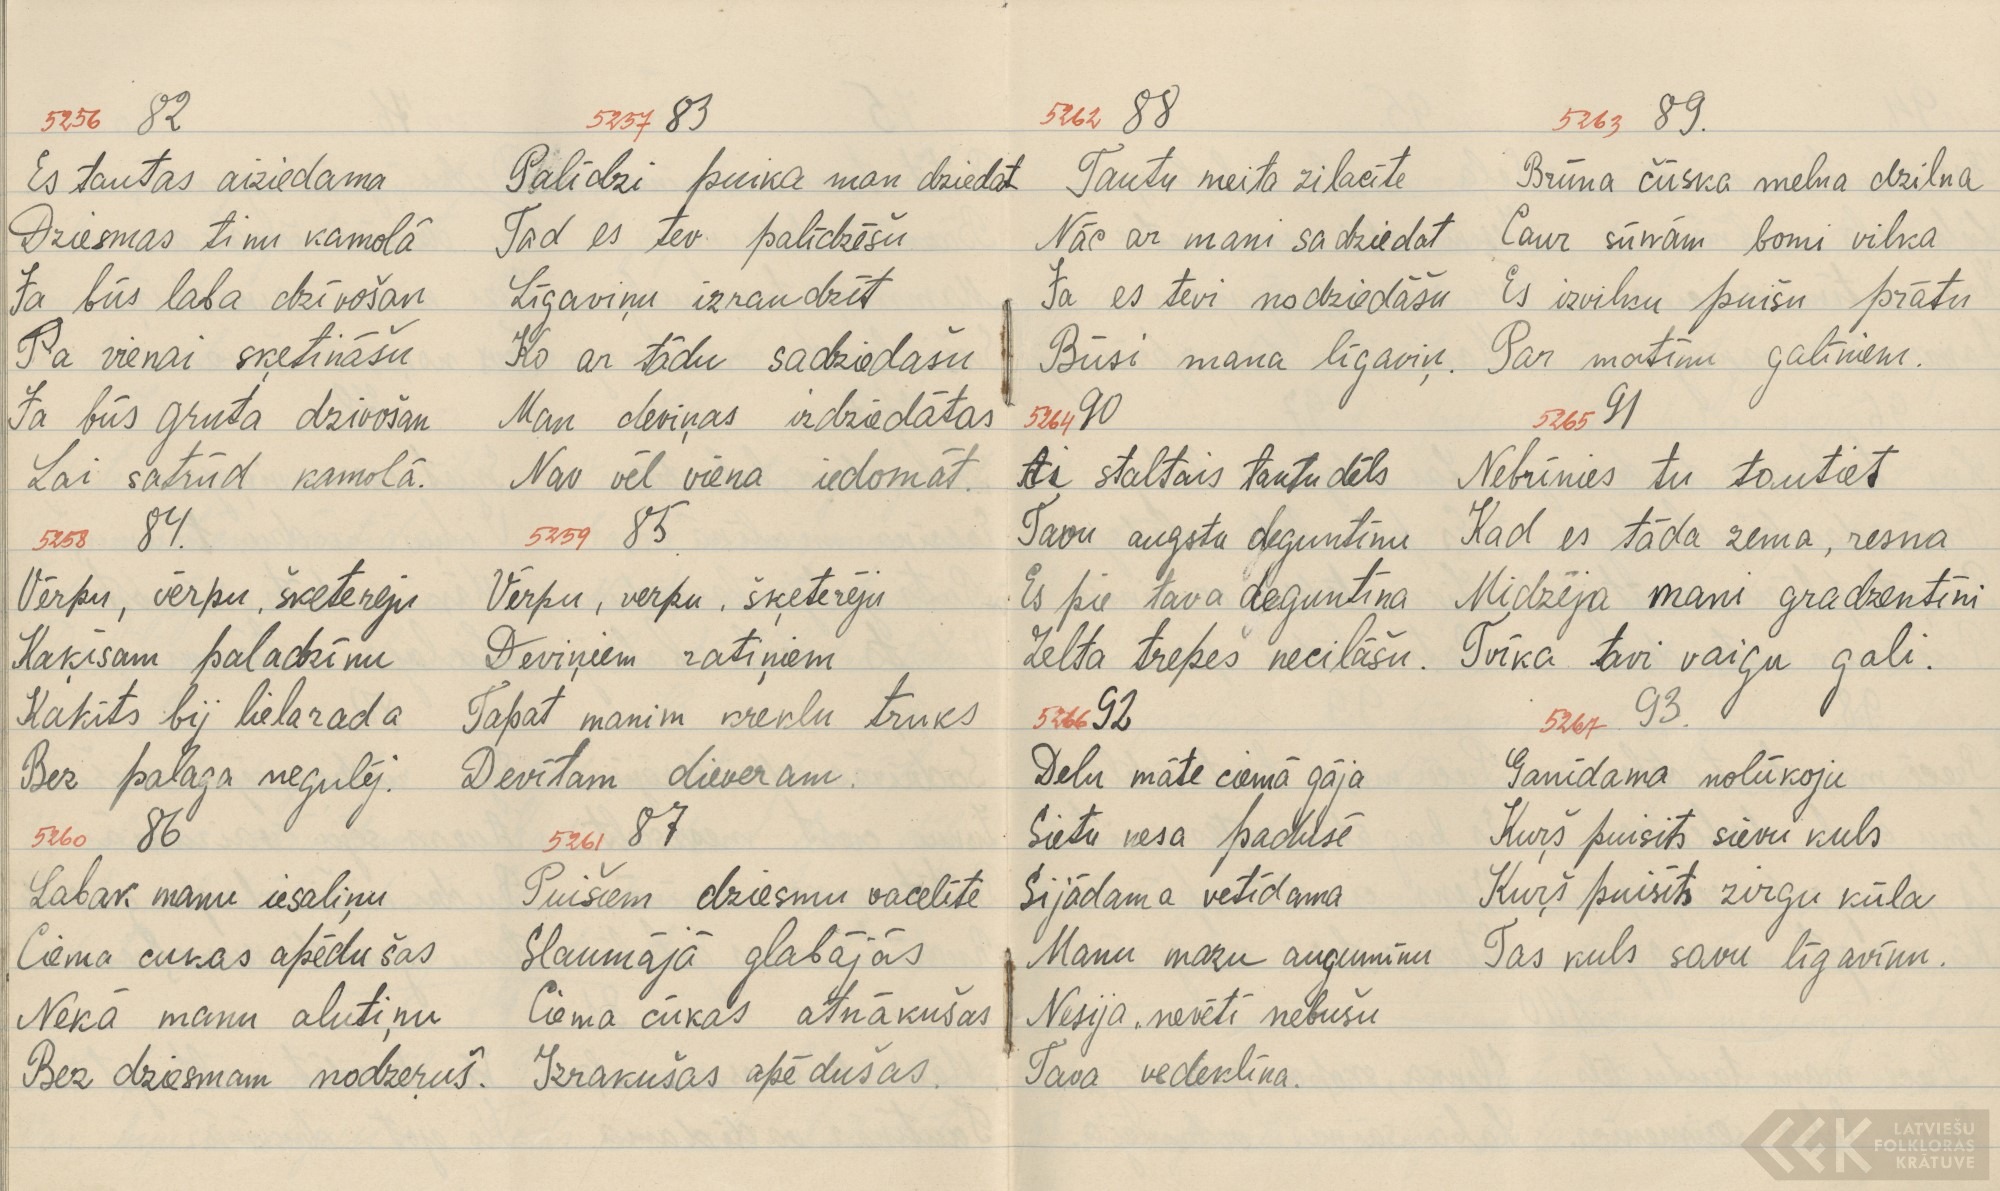 5256 82
Es tautas aiziedama
Dziesmas tinu kamolā
Ja būs laba dzīvošan
Pa vienai šķetināšu
Ja būs gruta dzivošan
Lai satrūd kamolā.
5257 83
Palīdzi puika man dziedāt
Tad es tev palīdzēšu
Līgaviņu izraudzīt
Ko ar tādu sadziedašu
Man deviņas izdziedātas
Nav vēl viena iedomāt.
5258 84.
Vērpu, vērpu, šķeterēju
Kaķīsam paladzīnu
Kaķīts bij lielarada
Bez palaga negulēj.
5259 85
Vērpu, verpu, šķeterēju
Deviņiem ratiņiem
Tapat manim kreklu truks
Devītam dieveram.
5260 86
Labak manu iesaliņu
Ciema cukas apēdušas
Nekā manu alutiņu
Bez dziesmam nodzeruš.
5261 87
Puišiem dziesmu vacelīte
Slaumājā glabājās
Ciema cūkas atnākušas
Izrakušas apēdušas.
5262 88
Tautu meita zilacīte
Nāc ar mani sadziedat
Ja es tevi nodziedāšu
Būsi mana līgaviņ.
5263 89.
Brūna čūska melna dzilna
Caur sūnām bomi vilka
Es izvilku puišu prātu
Par matīnu galīniem.
5264 90
Ai staltais tautu dēls
Tavu augstu deguntīnu
Es pie tava deguntīna
Zelta trepes necilāšu.
5265 91
Nebrīnies tu tautiet
Kad es tāda zema, resna
Midzēja mani gradzentīni
Tvīka tavi vaigu gali.
5266 92
Delu māte ciemā gāja
Sietu nesa padusē
Sijādama vetīdama
Manu mazu augumīnu
Nesija, nevētī nebušu
Tava vedeklīna.
5267 93.
Ganīdama nolūkoju
Kurš puisits sievu kuls
Kurš puisīts zirgu kūla
Tas kuls savu līgavīnu.
LATVIEŠU
FOLKLORAS
KRĀTUVE